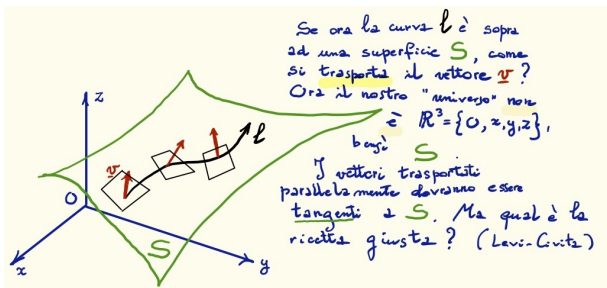 Se ora la curva l è sopra
ad una superficie S, come
si trasporta il vettore v ?
Ora il nostro "universo" non
è R³={O,x,y,z},
bensì S.
I vettori trasportati
parallelamente dovranno essere
tangenti a S. Ma qual è la
ricetta giusta? (Levi-Civita)
z
l
v
O
S
x
y